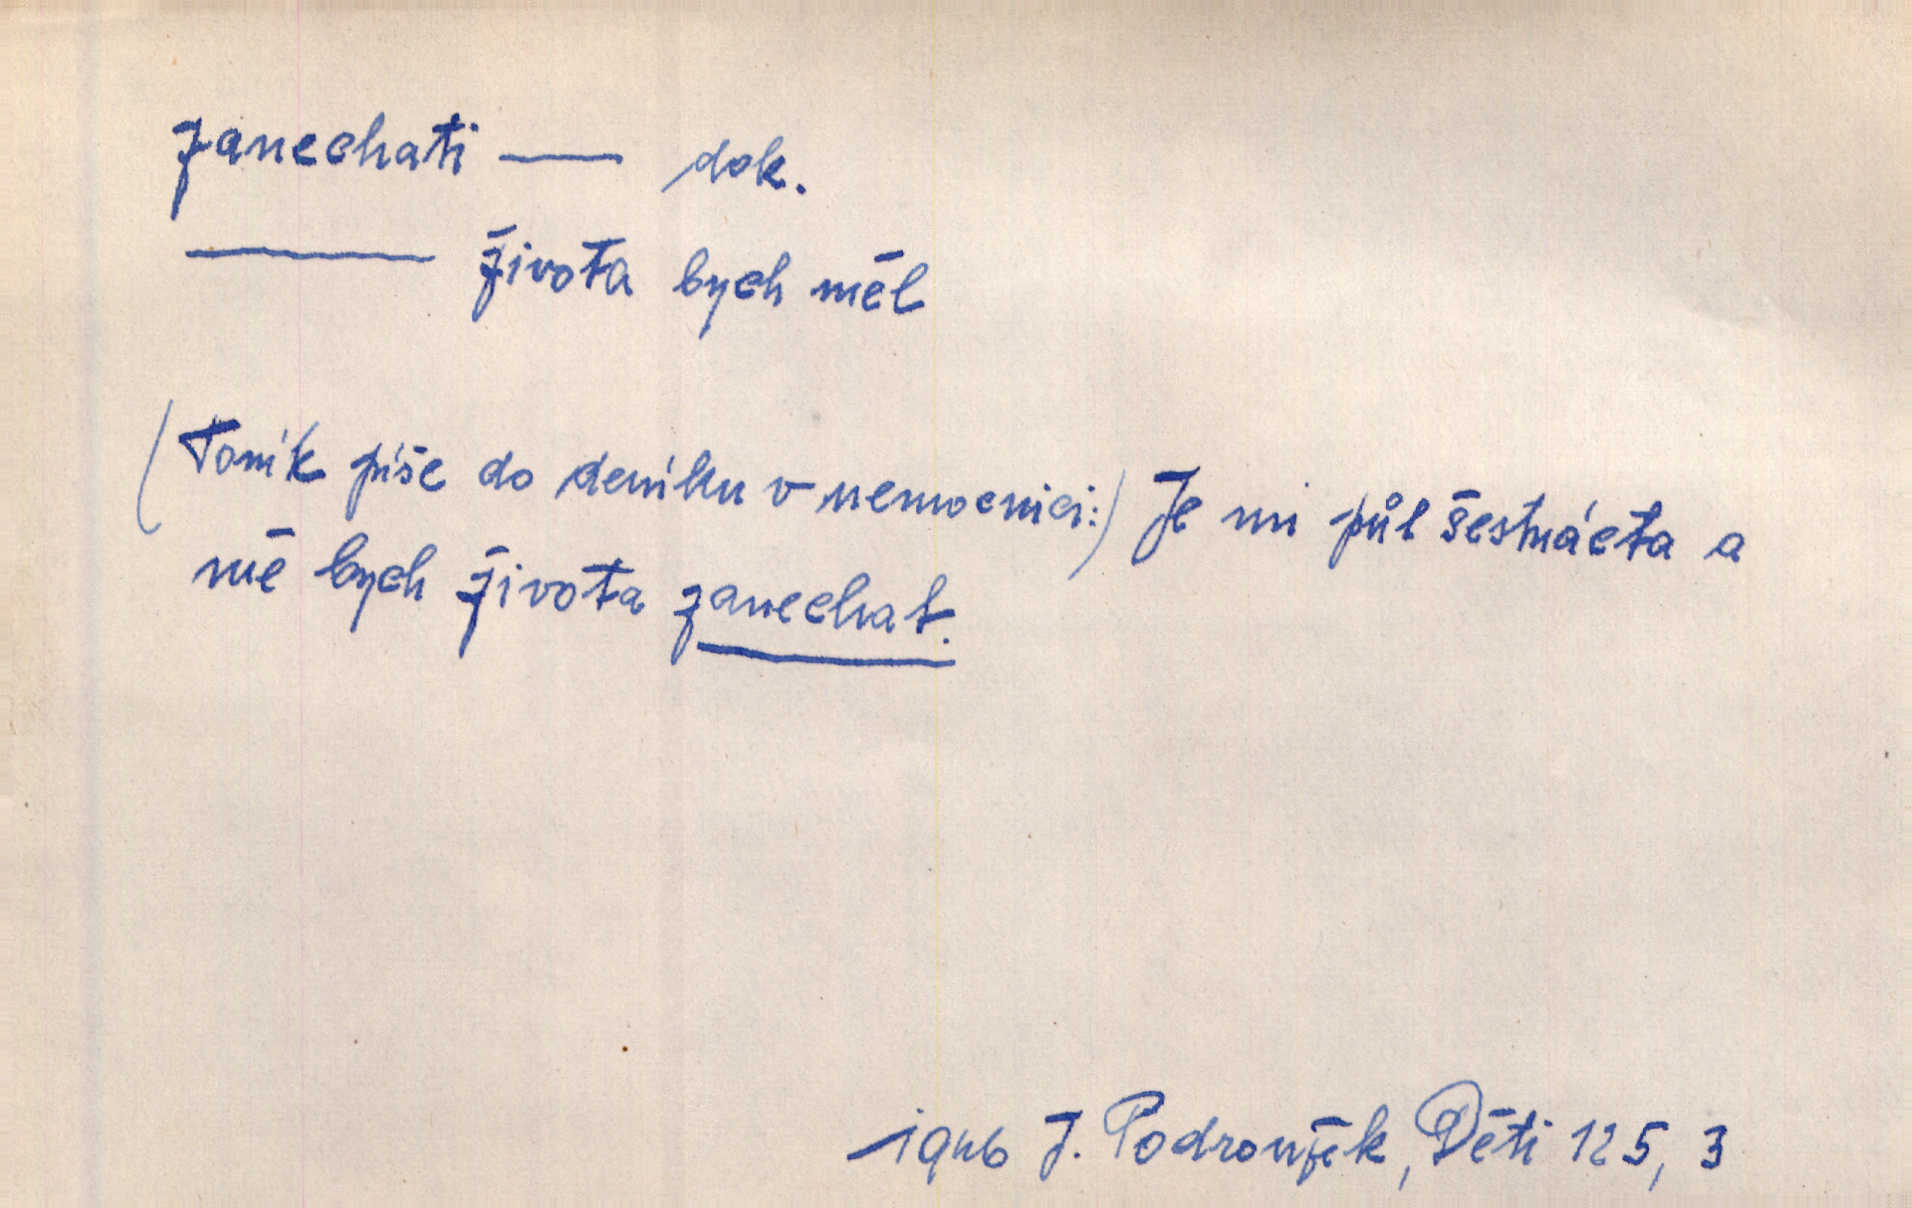 zanechati — dok.
— života bych měl
(Toník píše do deníku v nemocnici:) Je mi půl šestnácta a
mě bych života zanechat.
1946 J. Podroužek, Děti 125, 3